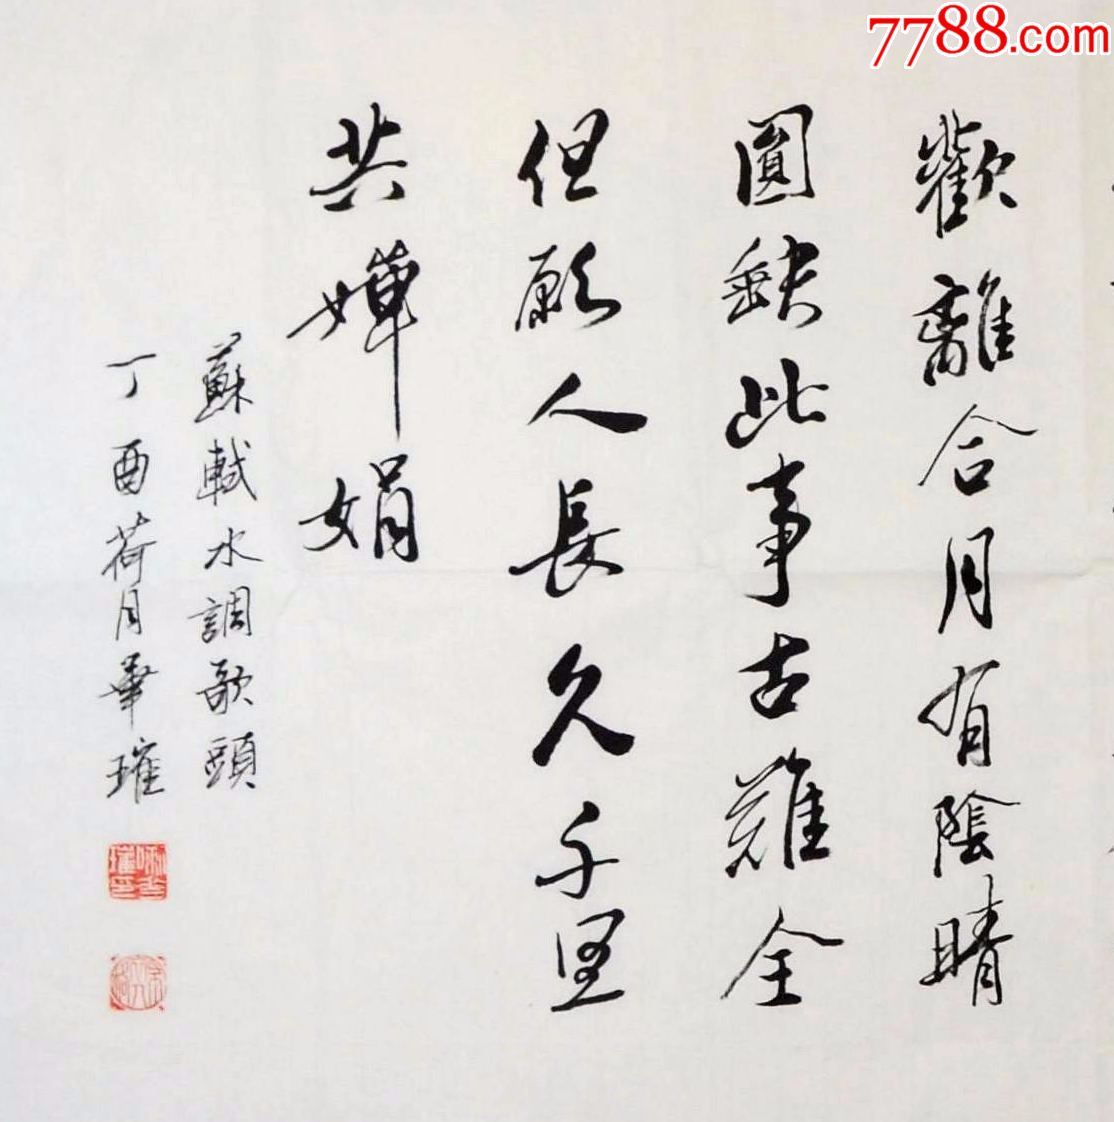 7788.com
歡離合月有陰晴
圓缺此事古難全
但願人長久千里
共嬋娟
蘇軾水調歌頭
丁酉荷月畢璀